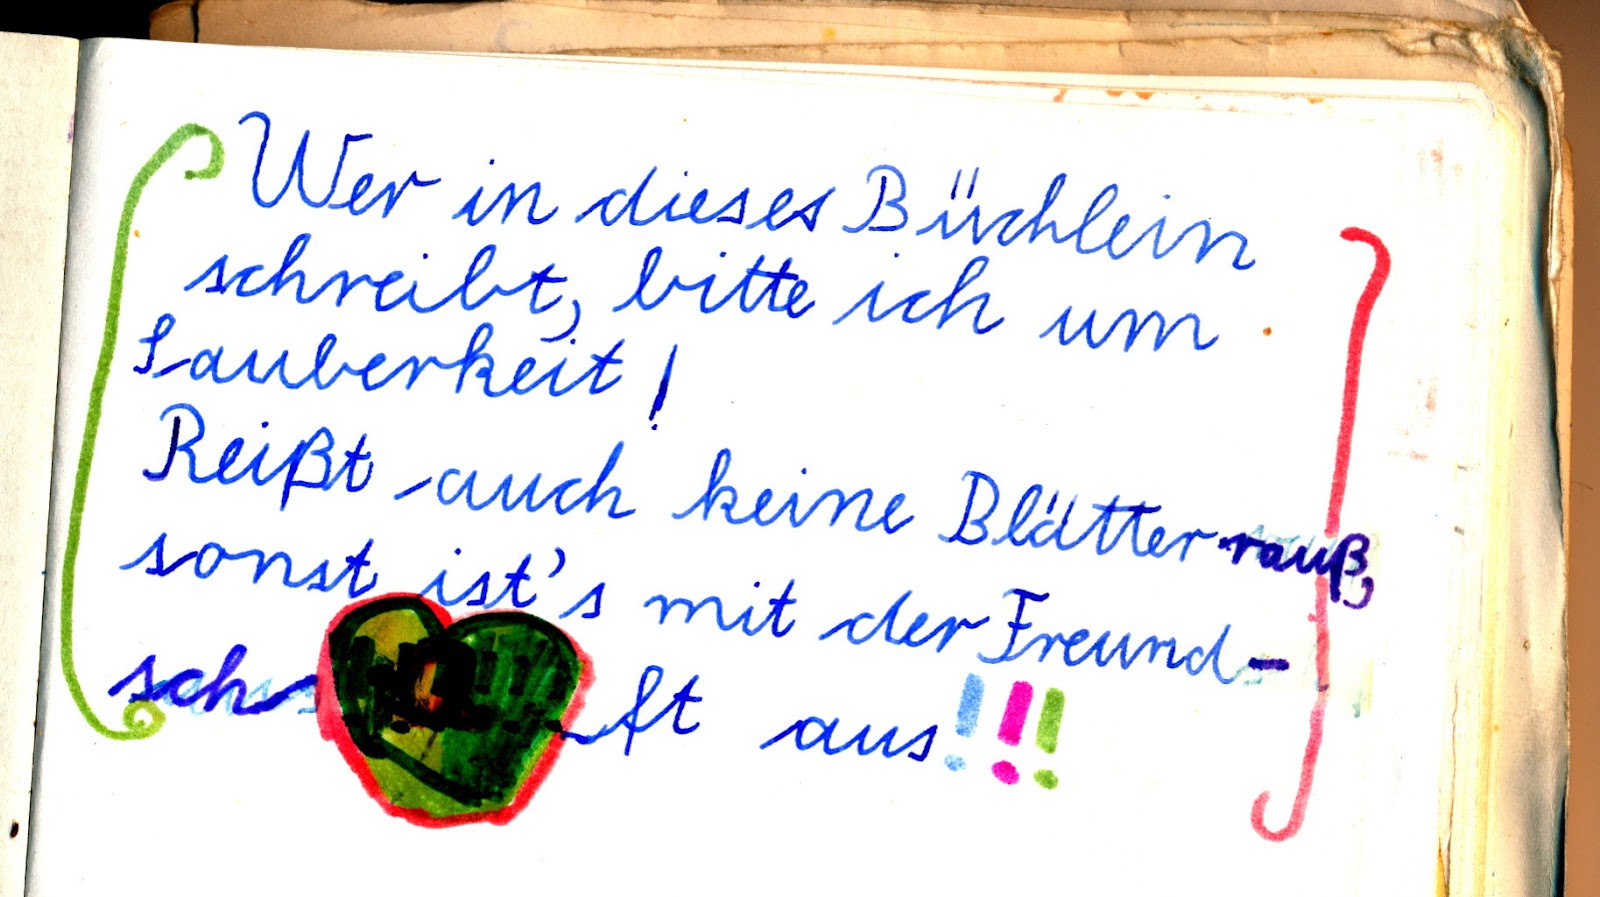 Wer in dieses Büchlein
schreibt, bitte ich um
Sauberkeit!
Reißt auch keine Blätter rauß,
sonst ist's mit der Freund-
schaft aus!!!